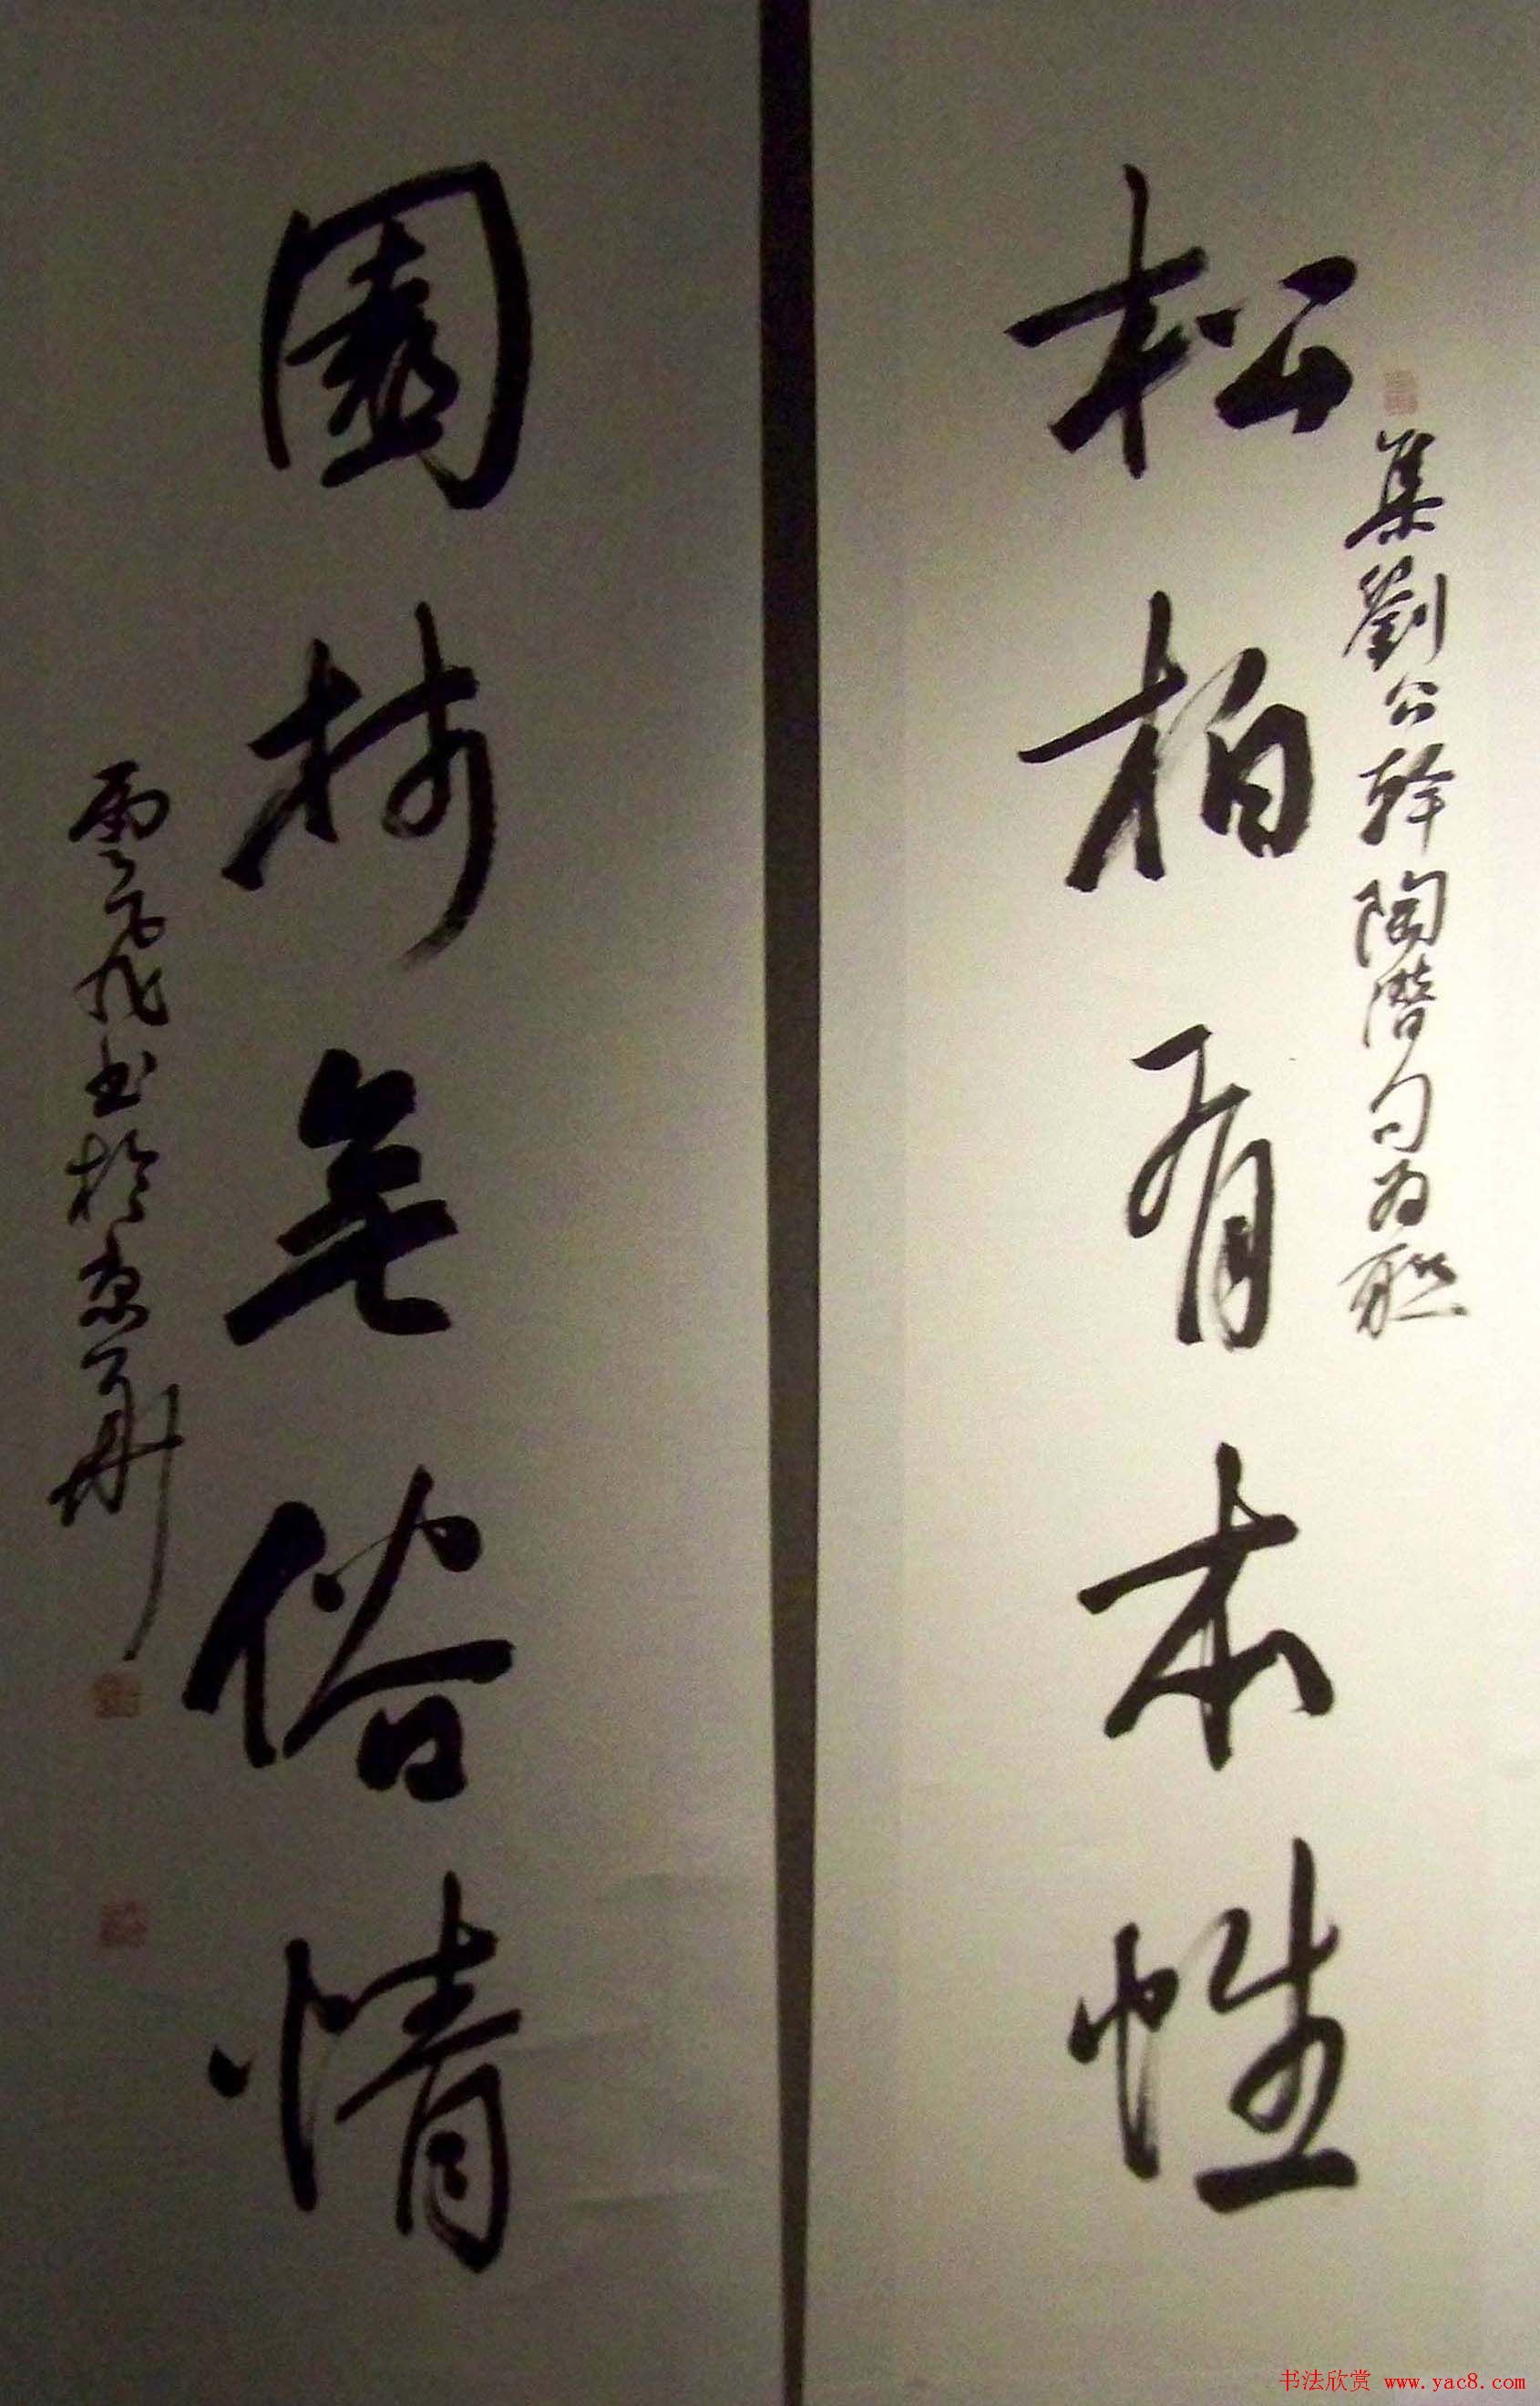 松柏有本性
集劉公幹陶潛句為聯
園林無俗情
雲飛書於京華
书法欣赏 www.yac8.com